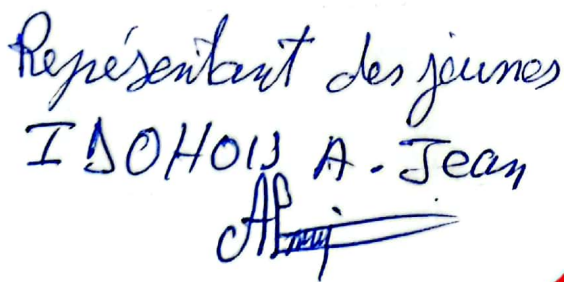 Représentant des jeunes
IDOHOU A. Jean